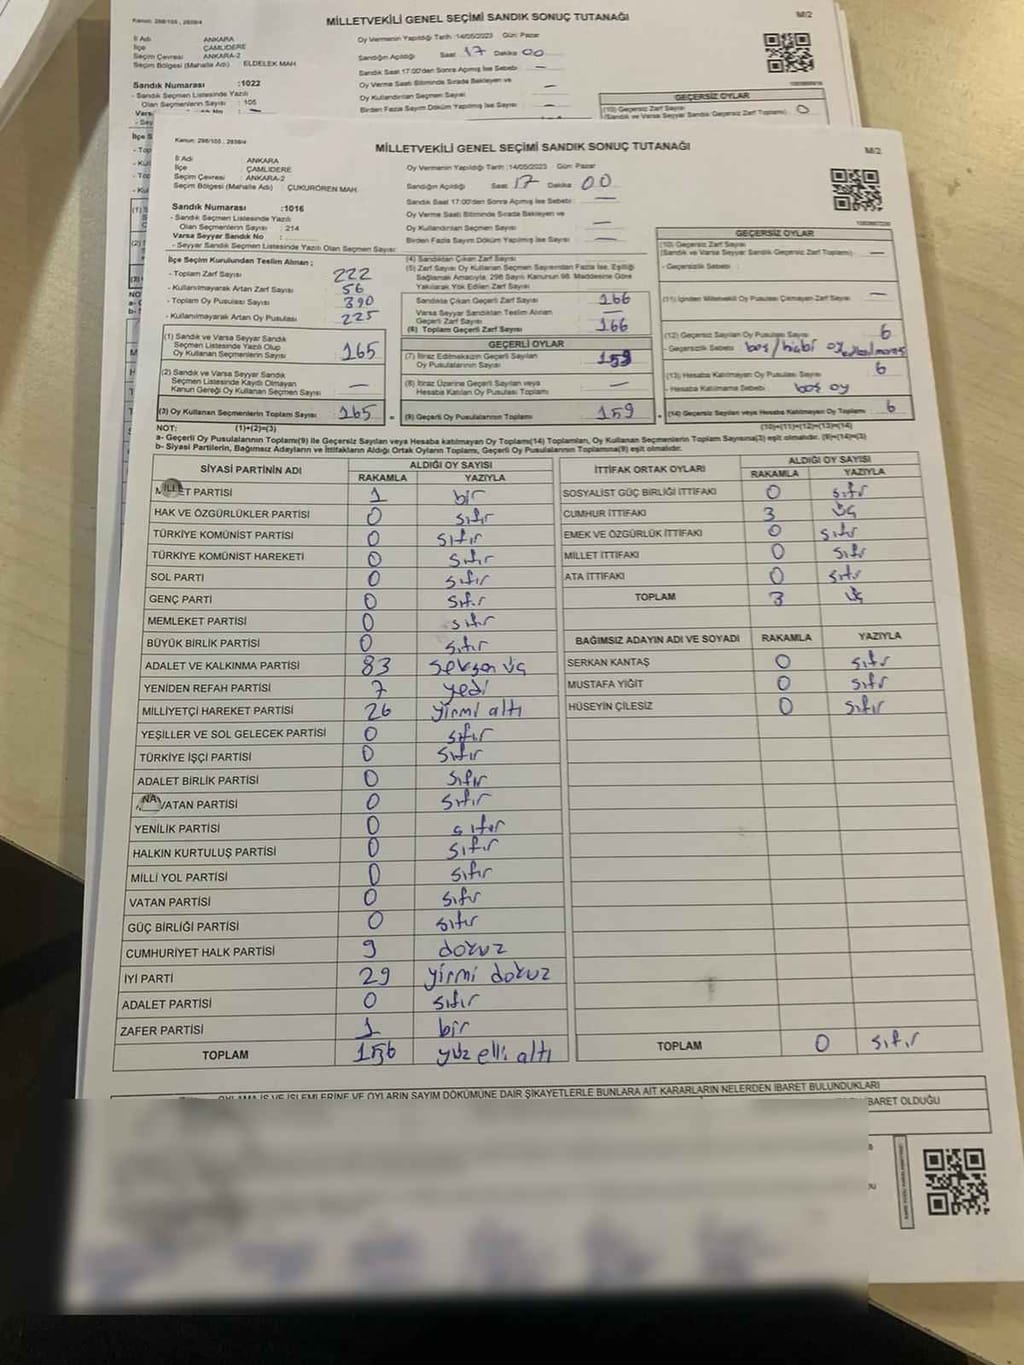 Kanun: 298/105 , 2839/4
MİLLETVEKİLİ GENEL SEÇİMİ SANDIK SONUÇ TUTANAĞI
M/2
İl Adı ANKARA
İlçe ÇAMLIDERE
Seçim Çevresi ANKARA-2
Seçim Bölgesi (Mahalle Adı) ELDELEK MAH
Oy Vermenin Yapıldığı Tarih :14/05/2023 Gün: Pazar
Sandığın Açıldığı Saat 17 Dakika 00
Sandık Saat 17:00'den Sonra Açmış İse Sebebi —
Oy Verme Saati Bitiminde Sırada Bekleyen ve
Oy Kullandırılan Seçmen Sayısı —
Birden Fazla Sayım Döküm Yapılmış İse Sayısı —
Sandık Numarası :1022
- Sandık Seçmen Listesinde Yazılı
Olan Seçmenlerin Sayısı : 105
GEÇERSİZ OYLAR
(10) Geçersiz Zarf Sayısı
(Sandık ve Varsa Seyyar Sandık Geçersiz Zarf Toplamı) 0
Kanun: 298/105 , 2839/4
MİLLETVEKİLİ GENEL SEÇİMİ SANDIK SONUÇ TUTANAĞI
M/2
İl Adı : ANKARA
İlçe : ÇAMLIDERE
Seçim Çevresi : ANKARA-2
Seçim Bölgesi (Mahalle Adı) : ÇUKURÖREN MAH.
Oy Vermenin Yapıldığı Tarih :14/05/2023 Gün: Pazar
Sandığın Açıldığı Saat 17 Dakika 00
Sandık Saat 17:00'den Sonra Açmış İse Sebebi —
Oy Verme Saati Bitiminde Sırada Bekleyen ve
Oy Kullandırılan Seçmen Sayısı —
Birden Fazla Sayım Döküm Yapılmış İse Sayısı —
Sandık Numarası :1016
- Sandık Seçmen Listesinde Yazılı
Olan Seçmenlerin Sayısı : 214
Varsa Seyyar Sandık No :
- Seyyar Sandık Seçmen Listesinde Yazılı Olan Seçmen Sayısı:
İlçe Seçim Kurulundan Teslim Alınan ;
- Toplam Zarf Sayısı 222
- Kullanılmayarak Artan Zarf Sayısı 56
- Toplam Oy Pusulası Sayısı 390
- Kullanılmayarak Artan Oy Pusulası 225
(1) Sandık ve Varsa Seyyar Sandık
Seçmen Listesinde Yazılı Olup
Oy Kullanan Seçmenlerin Sayısı 165
(2) Sandık ve Varsa Seyyar Sandık
Seçmen Listesinde Kaydı Olmayan
Kanun Gereği Oy Kullanan Seçmen Sayısı —
(3) Oy Kullanan Seçmenlerin Toplam Sayısı 165
(4) Sandıktan Çıkan Zarf Sayısı
(5) Zarf Sayısı Oy Kullanan Seçmen Sayısından Fazla İse, Eşitliği
Sağlamak Amacıyla; 298 Sayılı Kanunun 98. Maddesine Göre
Yakılarak Yok Edilen Zarf Sayısı
Sandıkta Çıkan Geçerli Zarf Sayısı 166
Varsa Seyyar Sandıktan Teslim Alınan
Geçerli Zarf Sayısı —
(6) Toplam Geçerli Zarf Sayısı 166
GEÇERLİ OYLAR
(7) İtiraz Edilmeksizin Geçerli Sayılan
Oy Pusulalarının Sayısı 159
(8) İtiraz Üzerine Geçerli Sayılan veya
Hesaba Katılan Oy Pusulası Toplamı —
(9) Geçerli Oy Pusulalarının Toplamı 159
GEÇERSİZ OYLAR
(10) Geçersiz Zarf Sayısı
(Sandık ve Varsa Seyyar Sandık Geçersiz Zarf Toplamı) —
- Geçersizlik Sebebi :
(11) İçinden Milletvekili Oy Pusulası Çıkmayan Zarf Sayısı —
(12) Geçersiz Sayılan Oy Pusulası Sayısı 6
- Geçersizlik Sebebi boş/hiçbi oy
(13) Hesaba Katılmayan Oy Pusulası Sayısı 6
Hesaba Katılmama Sebebi boş oy
(14) Geçersiz Sayılan veya Hesaba Katılmayan Oy Toplamı 6
NOT: (1)+(2)=(3) (10)+(11)+(12)+(13)=(14)
a- Geçerli Oy Pusulalarının Toplamı(9) ile Geçersiz Sayılan veya Hesaba katılmayan Oy Toplamı(14) Toplamları, Oy Kullanan Seçmenlerin Toplam Sayısına(3) eşit olmalıdır. (9)+(14)=(3)
b- Siyasi Partilerin, Bağımsız Adayların ve İttifakların Aldığı Ortak Oyların Toplamı, Geçerli Oy Pusulalarının Toplamına(9) eşit olmalıdır.
SİYASİ PARTİNİN ADI ALDIĞI OY SAYISI
RAKAMLA YAZIYLA
MİLLET PARTİSI 1 bir
HAK VE ÖZGÜRLÜKLER PARTİSİ 0 sıfır
TÜRKİYE KOMÜNİST PARTİSİ 0 sıfır
TÜRKİYE KOMÜNİST HAREKETİ 0 sıfır
SOL PARTİ 0 sıfır
GENÇ PARTİ 0 sıfır
MEMLEKET PARTİSİ 0 sıfır
BÜYÜK BİRLİK PARTİSİ 0 sıfır
ADALET VE KALKINMA PARTİSİ 83 seksen üç
YENİDEN REFAH PARTİSİ 7 yedi
MİLLİYETÇİ HAREKET PARTİSİ 26 yirmi altı
YEŞİLLER VE SOL GELECEK PARTİSİ 0 sıfır
TÜRKİYE İŞÇİ PARTİSİ 0 sıfır
ADALET BİRLİK PARTİSİ 0 sıfır
ANAVATAN PARTİSİ 0 sıfır
YENİLİK PARTİSİ 0 sıfır
HALKIN KURTULUŞ PARTİSİ 0 sıfır
MİLLİ YOL PARTİSİ 0 sıfır
VATAN PARTİSİ 0 sıfır
GÜÇ BİRLİĞİ PARTİSİ 0 sıfır
CUMHURİYET HALK PARTİSİ 9 dokuz
İYİ PARTİ 29 yirmi dokuz
ADALET PARTİSİ 0 sıfır
ZAFER PARTİSİ 1 bir
TOPLAM 156 yüz elli altı
İTTİFAK ORTAK OYLARI ALDIĞI OY SAYISI
RAKAMLA YAZIYLA
SOSYALİST GÜÇ BİRLİĞİ İTTİFAKI 0 sıfır
CUMHUR İTTİFAKI 3 üç
EMEK VE ÖZGÜRLÜK İTTİFAKI 0 sıfır
MİLLET İTTİFAKI 0 sıfır
ATA İTTİFAKI 0 sıfır
TOPLAM 3 üç
BAĞIMSIZ ADAYIN ADI VE SOYADI RAKAMLA YAZIYLA
SERKAN KANTAŞ 0 sıfır
MUSTAFA YİĞİT 0 sıfır
HÜSEYİN ÇİLESİZ 0 sıfır
TOPLAM 0 sıfır
OYLAMA İŞ VE İŞLEMLERİNE VE OYLARIN SAYIM DÖKÜMÜNE DAİR ŞİKAYETLERLE BUNLARA AİT KARARLARIN NELERDEN İBARET BULUNDUKLARI
İBARET OLDUĞU